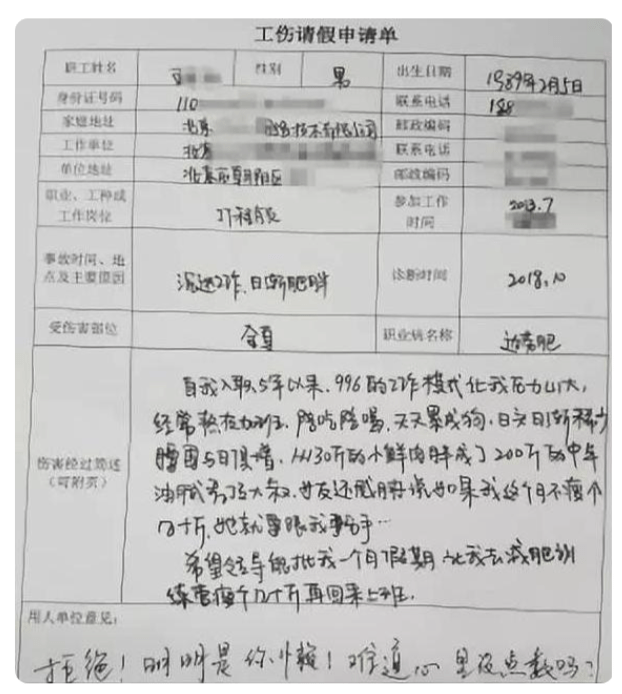 工伤请假申请单
职工姓名 性别 男 出生日期 1989年2月5日
身份证号码 110 联系电话 188
家庭地址 北京 技术有限公司 邮政编码
工作单位 北京 联系电话
单位地址 北京市朝阳区 邮政编码
职业、工种或
工作岗位 工程师 参加工作
时间 2013.7
事故时间、地
点及主要原因 沉迷工作,日渐肥胖 诊断时间 2018.10
受伤害部位 全身 职业病名称 过劳肥
伤害经过简述
(可附页)
自我入职5年以来,996的工作模式让我压力山大,
经常熬夜加班,陪吃陪喝,天天累成狗,日头日渐稀少
腰围与日俱增,从130斤的小鲜肉胖成了200斤的中年
油腻秃顶大叔,女友还威胁说如果我这个月不瘦个
几十斤,她就要跟我分手…
希望领导能批我一个月假期,让我去减肥训
练营瘦个几十斤再回来上班.
用人单位意见:
拒绝!明明是你懒!难道心里没点数吗?